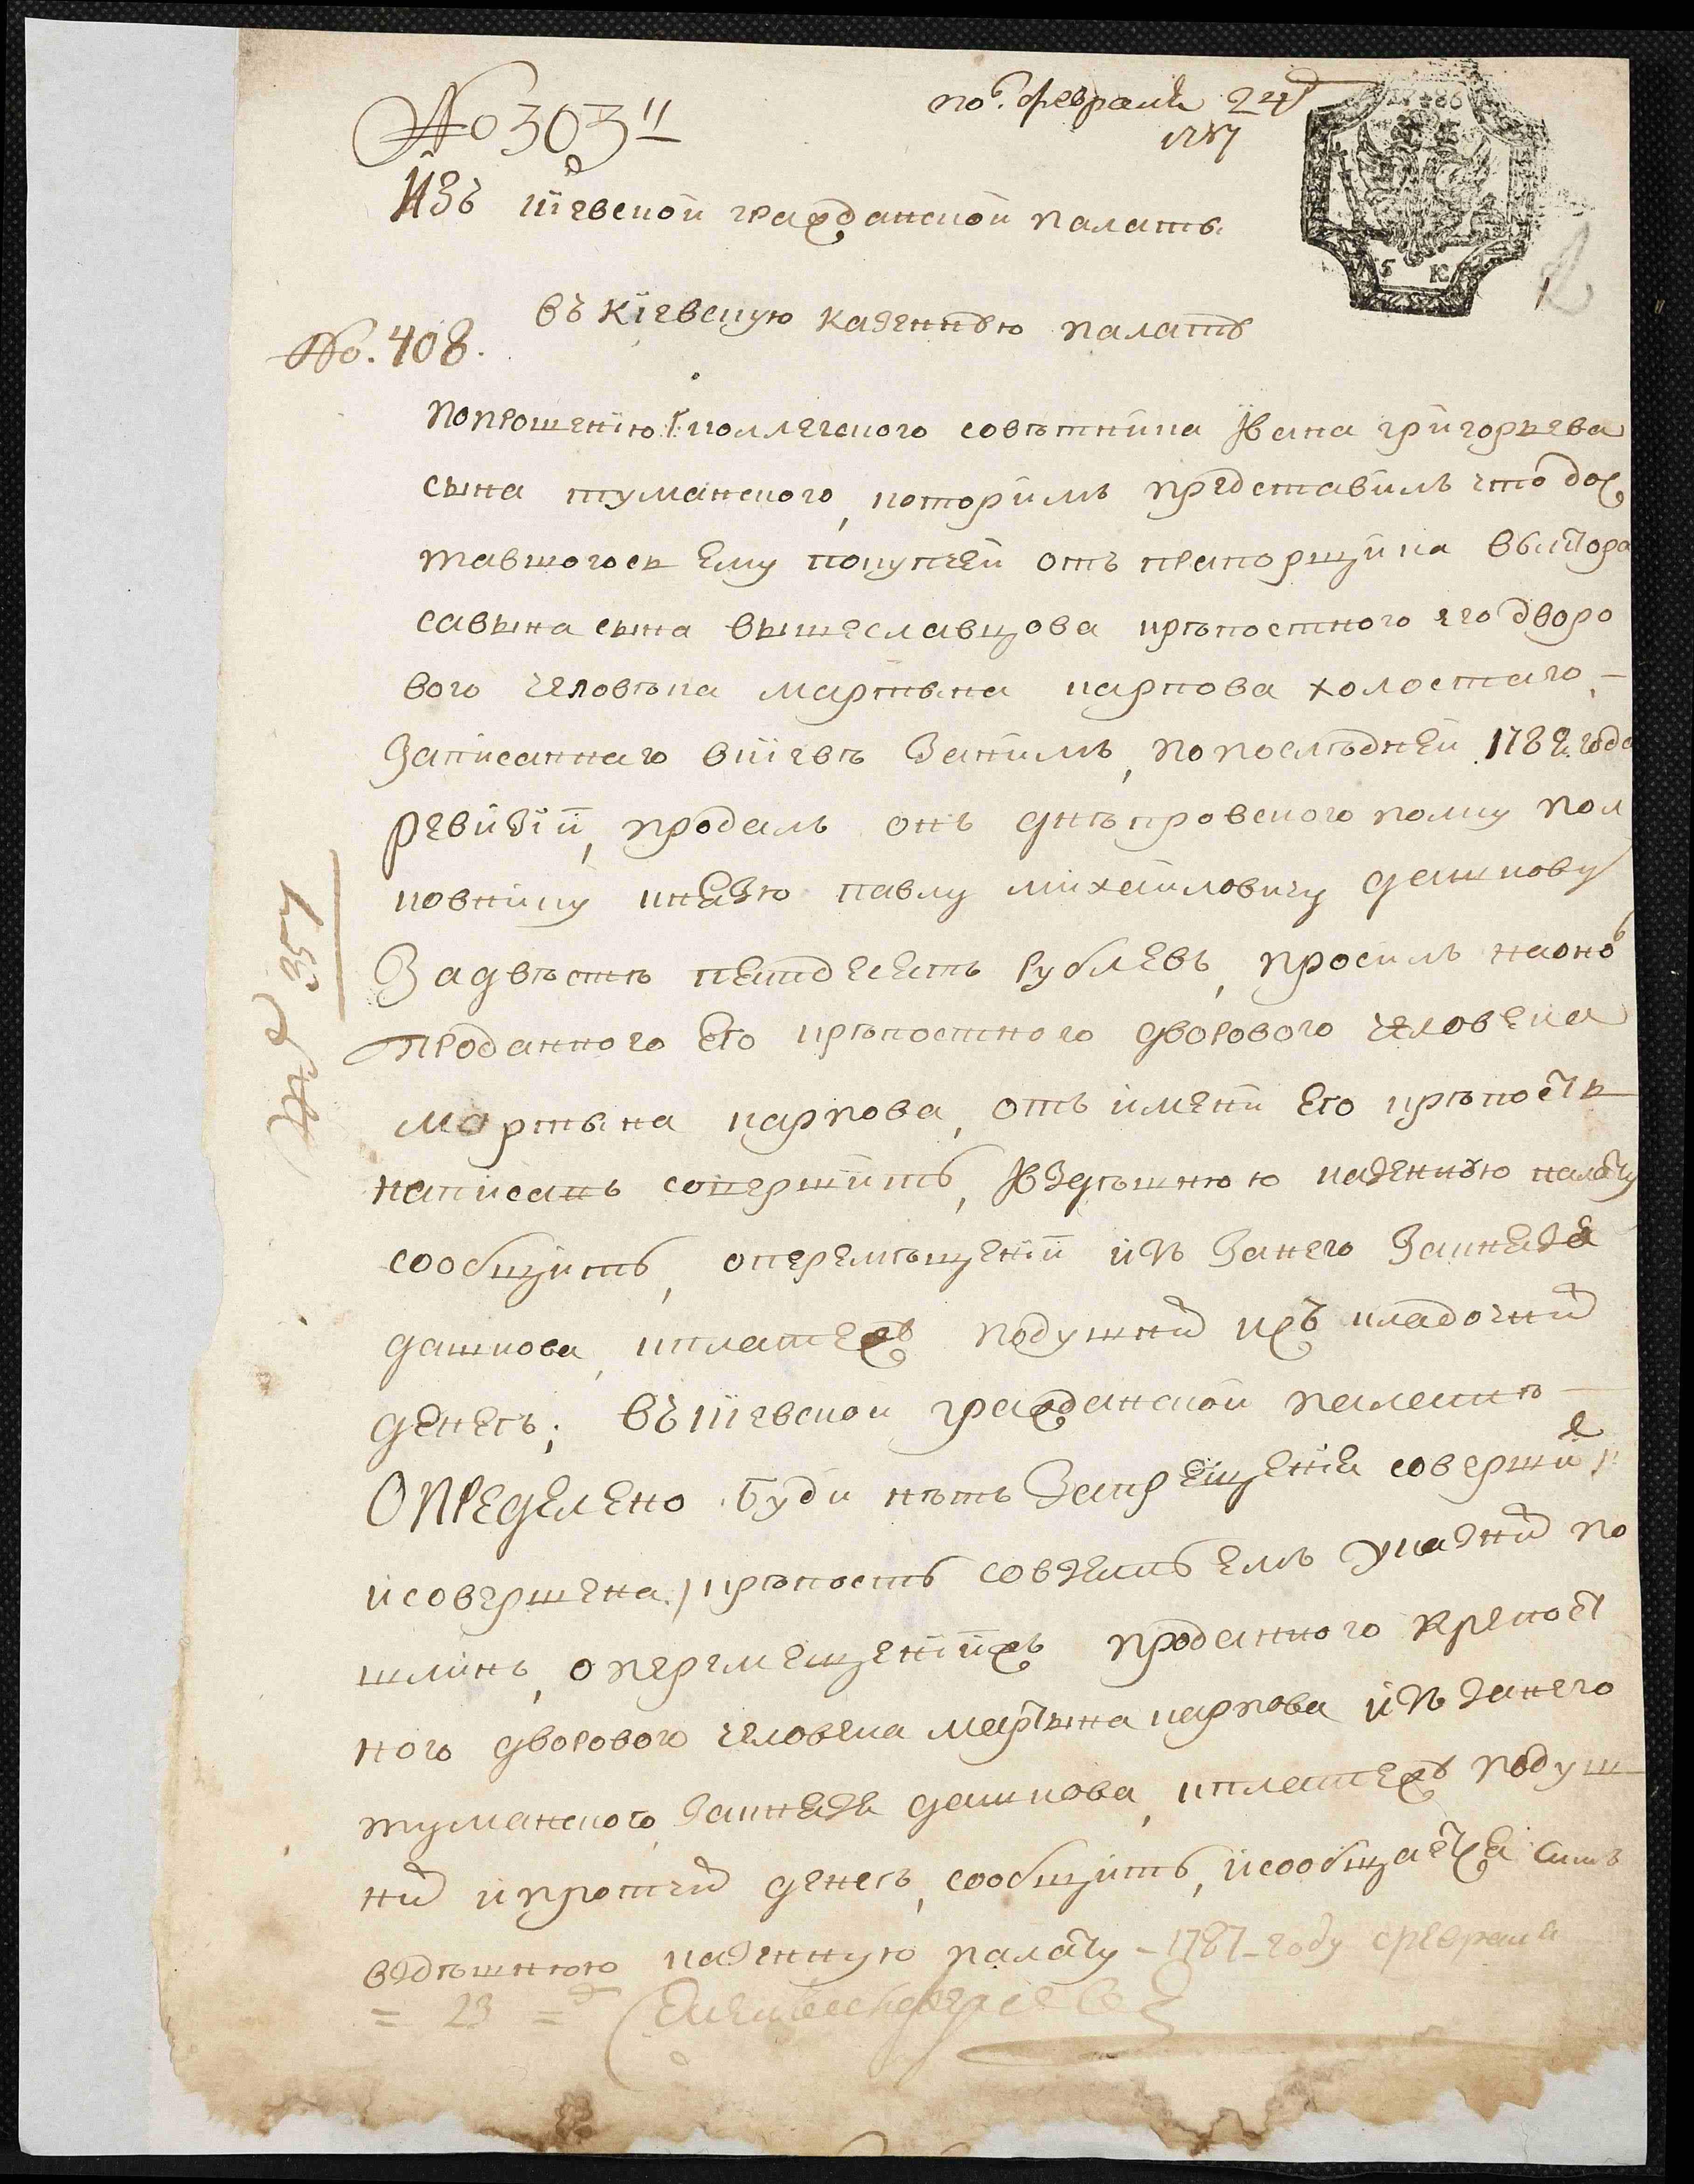 № 303
по. февраля 24
1787
1786
5 К
Изъ кіевской гражданской палаты
въ Кіевскую казенную палату
№. 408.
попрошенію коллегского совѣтника Ивана григорьева
сына туманского, которимъ представилъ что дос
тавшогось ему покупкей отъ прапорщика
савына сына вышеславцова крѣпостного его дворо
вого человѣка мартына карпова холостаго
Записанного вкіевѣ Занимъ, попослѣдней 1782 года
ревизіи, продалъ онъ днѣпровского полку пол
ковнику князю павлу михайловичу дашкову
Задвѣстѣ пятдесятъ рублевъ, просилъ наоно
проданного его крѣпостного дворового человека
мартына карпова, отъ имени его крѣпость
написать совершить, Ивздѣшнюю казенную палату
сообщить, оперемѣщеніи изъ Занего Закнязя
дашкова, иплатежъ подушних кладочних
денегъ; въ кіевской гражданской палатѣ
Определено буди нѣтъ Запрещенія соверши
исовершена крѣпость совзятьемъ указних по
шлинъ, оперемещеніи проданного крепост
ного дворового человека мартына карпова изъ Занего
туманского Закнязя дашкова, иплатежъ подуш
них ипротчих денегъ, сообщить, исообщается симъ
вздѣшнюю казенную палату 1787 году февраля
= 23 =
№ 357